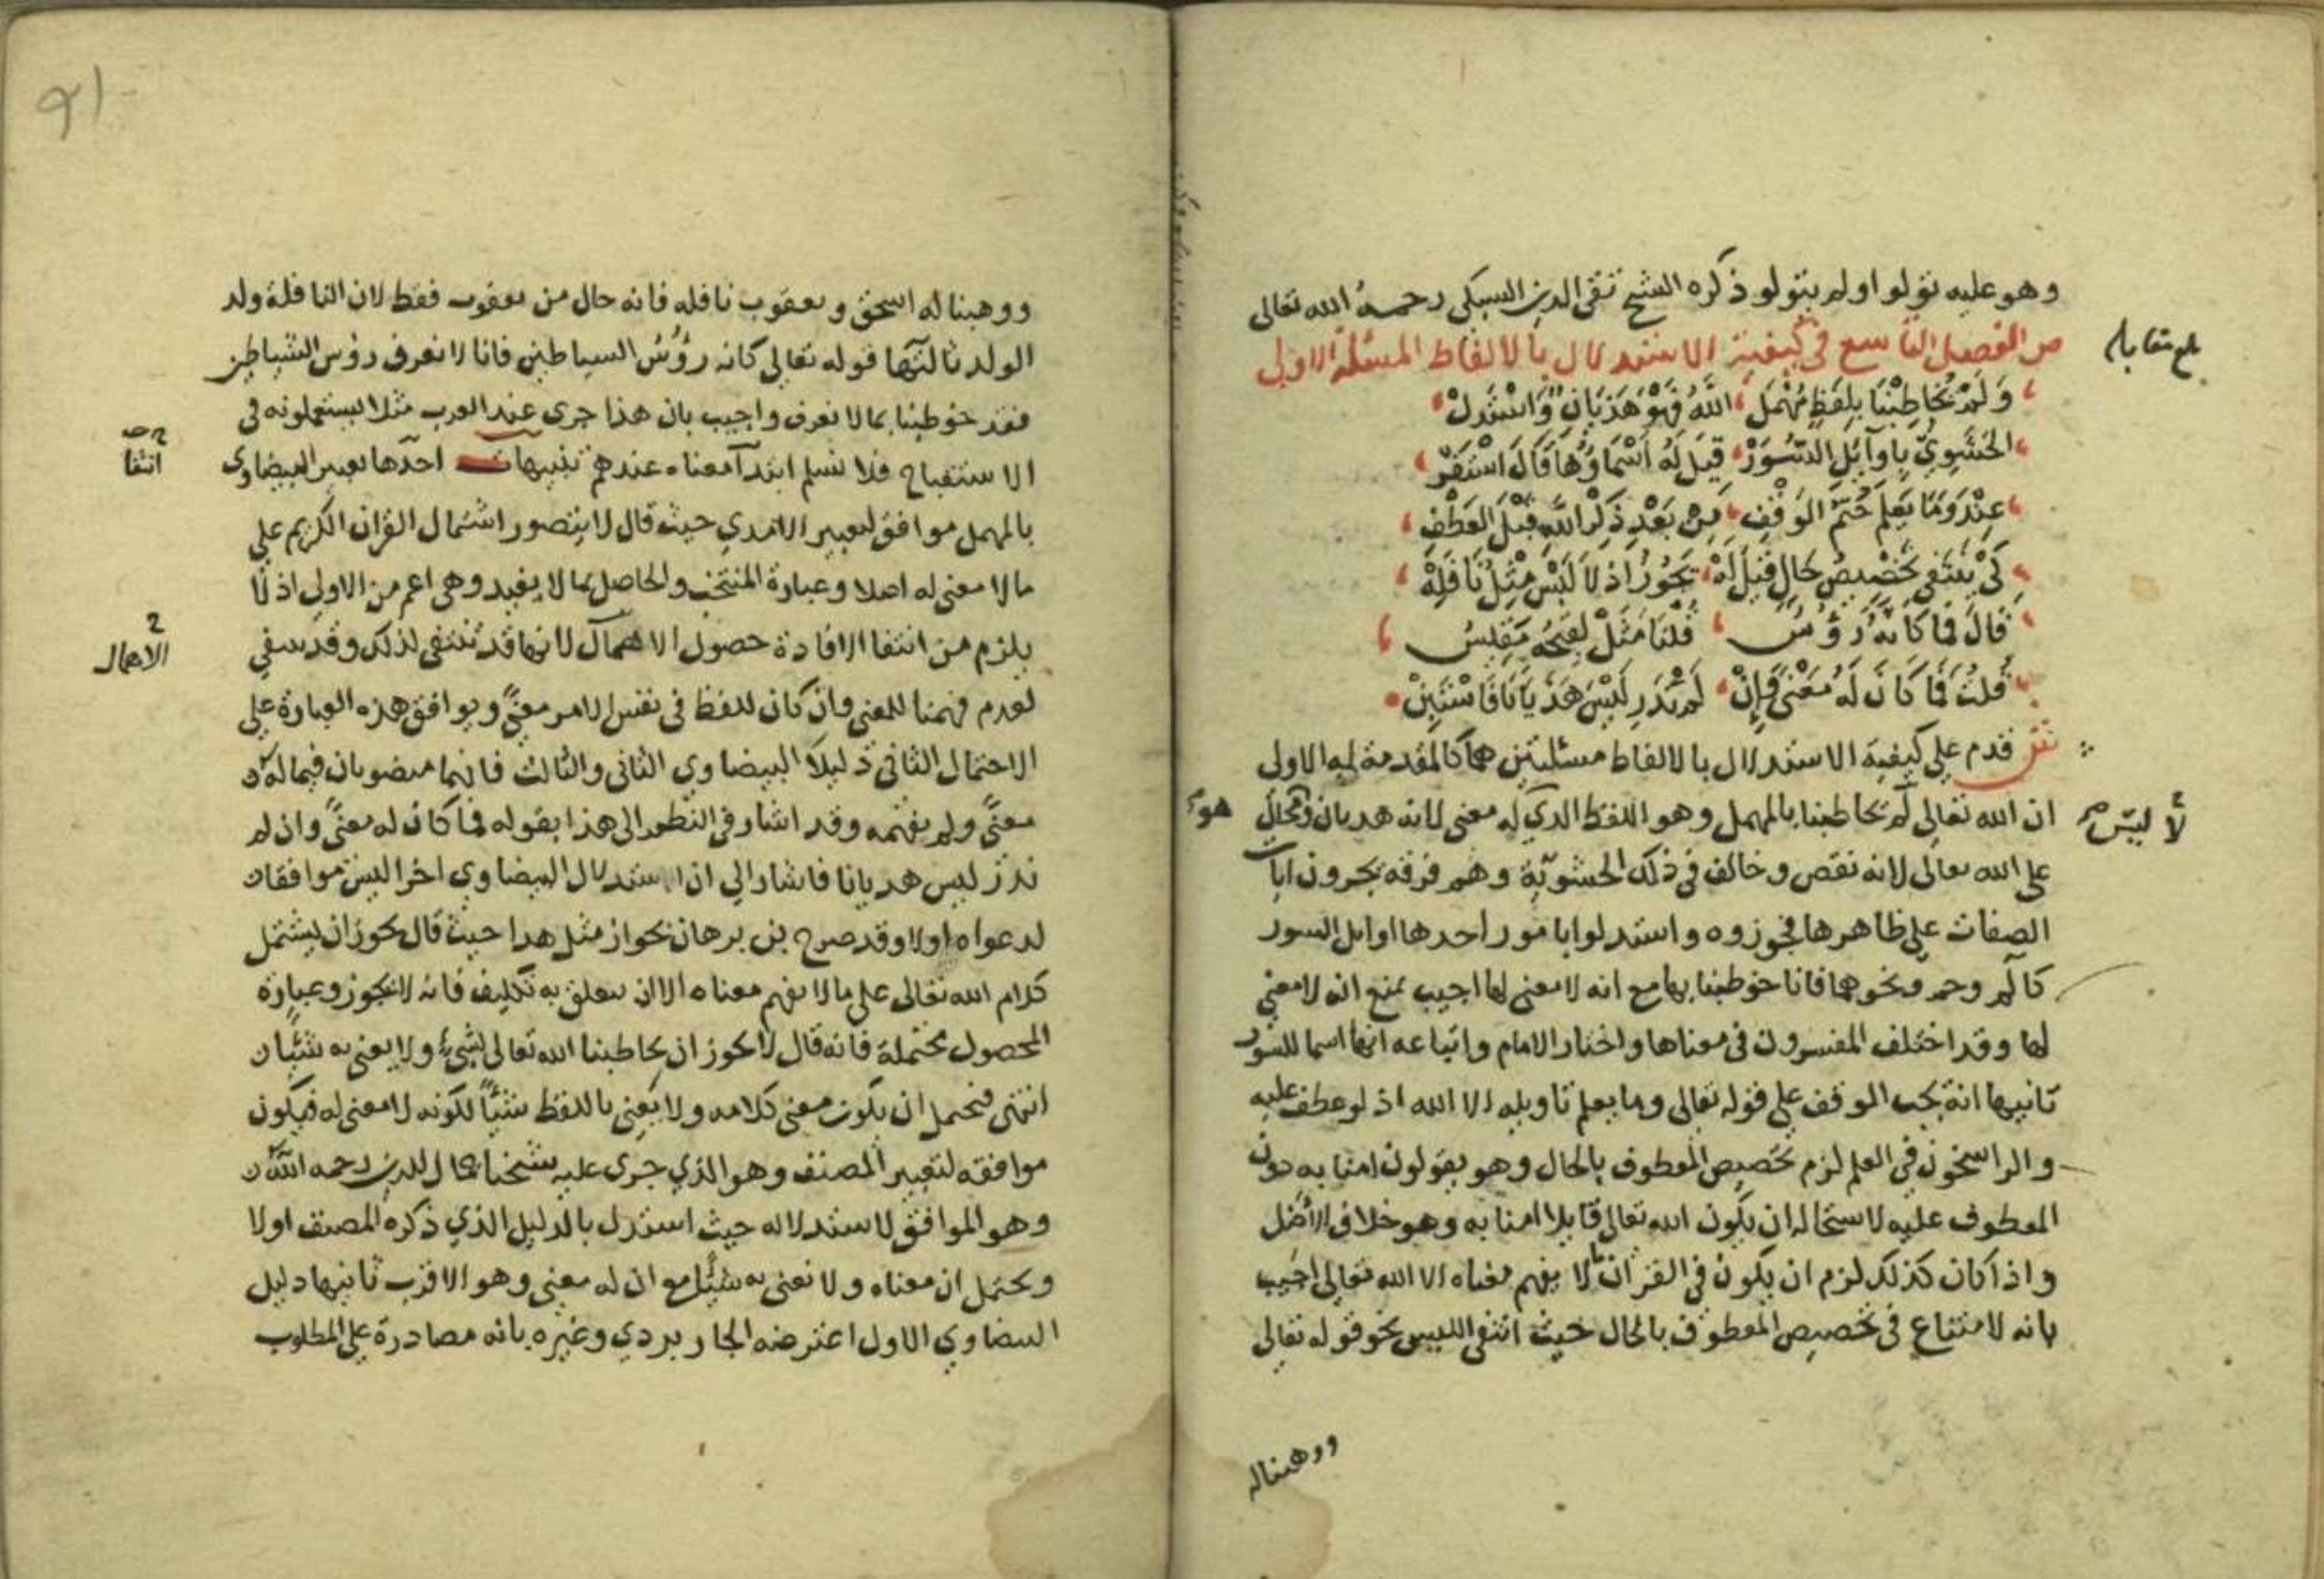 وهو عليه تولوا ولم يتولو ذكره الشيخ تقى الدين السبكى رحمه الله تعالى
ص الفصل التاسع فى كيفية الاستدلال بالالفاظ المسئلة الاولى
بلغ مقابلة
وَلَمْ يُخَاطِبْنَا بِلَفْظٍ مُهْمَلِ اللّٰهُ فَهْوَ هَذَيَانٌ وَاسْتَدَلْ
الحَشَوِيُّ بِاَوَآئِلِ السُّوَرْ قِيلَ لَهُ اَسْمَاؤُهَا قَالَ اسْتَقَرْ
عِنْدُ وَمَا يَعْلَمُ حَتْمُ الوَقْفِ مِنْ بَعْدِ ذِكْرِ اللّٰهِ قَبْلَ العَطْفِ
كَىْ يَنْتَفِى تَخْصِيصُ حَالٍ قِيلَ لَهْ يَجُوزُ اِذْ لاَ لَبْسَ مِثْلُ نَافِلَهْ
قَالَ فَمَا كَاَنَّهُ رُؤُسُ قُلْنَا مَثَلْ لِقُبْحِهِ مَقِيسُ
قُلتُ فَمَا كَانَ لَهُ مَعْنًى وَاِنْ لَمْ نَدْرِ لَيْسَ هَذَيَانًا فَاسْتَبِنْ
ش قدم على كيفية الاستدلال بالالفاظ مسئلتين هما كالمقدمة له الاولى
ان الله تعالى لم يخاطبنا بالمهمل وهو اللفظ الذى له معنى لانه هديان ومحال
لا ليس
هو
على الله تعالى لانه نقص وخالف فى ذلك الحشوية وهم فرقه يجرون ايات
الصفات على ظاهرها فجوزوه واستدلوا بامور احدها اوايل السور
كالم وحم ونحوهما فانا خوطبنا بها مع انه لا معنى لها اجيب بمنع انه لا معنى
لها وقد اختلف المفسرون فى معناها واختار الامام واتباعه انها اسما للسور
ثانيها انه يجب الوقف على قوله تعالى وما يعلم تاويله الا الله اذ لو عطف عليه
والراسخون فى العلم لزم تخصيص المعطوف بالحال وهو يقولون امنا به دون
المعطوف عليه لاستحالة ان يكون الله تعالى قايلا امنا به وهو خلاف الاصل
واذا كان كذلك لزم ان يكون فى القران ما لا يفهم معناه الا الله تعالى اجيب
بانه لا امتناع فى تخصيص المعطوف بالحال حيث انتفى اللبس نحو قوله تعالى
ووهبنا له
91
ووهبنا له اسحق ويعقوب نافله فانه حال من يعقوب فقط لان النافلة ولد
الولد ثالثها قوله تعالى كانه رؤس الشياطين فانا لا نعرف رؤس الشياطين
فقد خوطبنا بما لا نعرف واجيب بان هذا جرى عند العرب مثلا يستعملونه فى
الاستقباح فلا نسلم ابتدآ معناه عندهم تنبيهات احدها تعبير البيضاوى
انتفا
بالمهمل موافق لتعبير الامدي حيث قال لا يتصور اشتمال القران الكريم على
ما لا معنى له اصلا وعبارة المنتخب والحاصل بما لا يفيد وهى اعم من الاولى اذ لا
يلزم من انتفا الافادة حصول الاهمال لانها قد تنتفى لذلك وقد تنتفي
الاهمال
لعدم فهمنا للمعنى وان كان للفظ فى نفس الامر معنًى ويوافق هذه العبارة على
الاحتمال الثانى دليلا البيضاوي الثانى والثالث فانهما منصوبان فيما له
معنًى ولم نفهمه وقد اشار فى النظم الى هذا بقوله فما كان له معنًى وان لم
ندر ليس هديانا فاشار الى ان استدلال البيضاوى اخرا ليس موافقا
لدعواه اولا وقد صرح بن برهان بجواز مثل هدا حيث قال يجوز ان يشتمل
كلام الله تعالى على ما لا يفهم معناه الا ان يتعلق به تكليف فانه لا يجوز وعبارة
المحصول محتملة فانه قال لا يجوز ان يخاطبنا الله تعالى بشيء ولا يعنى به شيئا
انتهى فيحتمل ان يكون معنى كلامه ولا يعنى باللفظ شيئًا لكونه لا معنى له فيكون
موافقه لتعبير المصنف وهو الذي جرى عليه شيخنا جمال الدين رحمه الله
وهو الموافق لاستدلاله حيث استدل بالدليل الذي ذكره المصنف اولا
ويحتمل ان معناه ولا نعنى به شيئا مع ان له معنى وهو الاقرب ثانيها دليل
البيضاوي الاول اعترضه الجاربردي وغيره بانه مصادرة على المطلوب